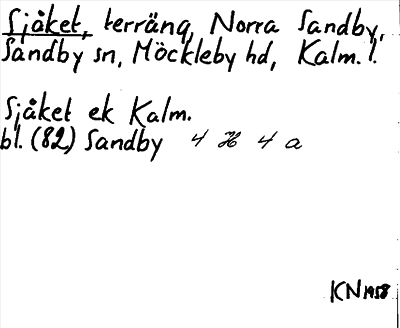 Sjåket, terräng, Norra Sandby,
Sandby sn, Möckleby hd, Kalm. l.
Sjåket ek Kalm.
bl. (82) Sandby 4 H 4 a
KN 1958